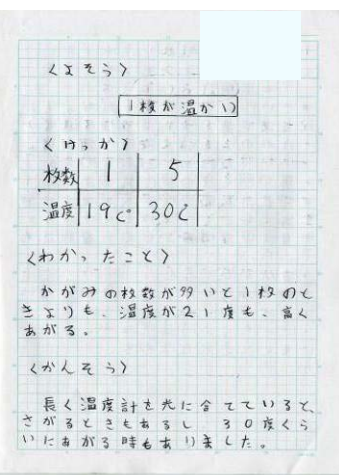 〈よそう〉
1枚が温かい
〈けっか〉
枚数 1 5
温度 19c° 30c
〈わかったこと〉
かがみの枚数が多いと1枚のと
きよりも、温度が21度も、高く
あがる。
〈かんそう〉
長く温度計を光に合てていると、
さがるときもあるし 30度くら
いにあがる時もありました。